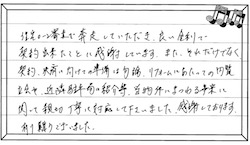 住宅ローン審査で奔走していただき、良い金利で
契約出来たことに感謝しています。また、それだけでなく
契約、決済に向けての準備は勿論、リフォームにあたっての内覧
立会や、近隣駐車場の紹介等、当物件にまつわる事柄に
関って親切丁寧に対応して下さいました。感謝しております。
有り難うございました。